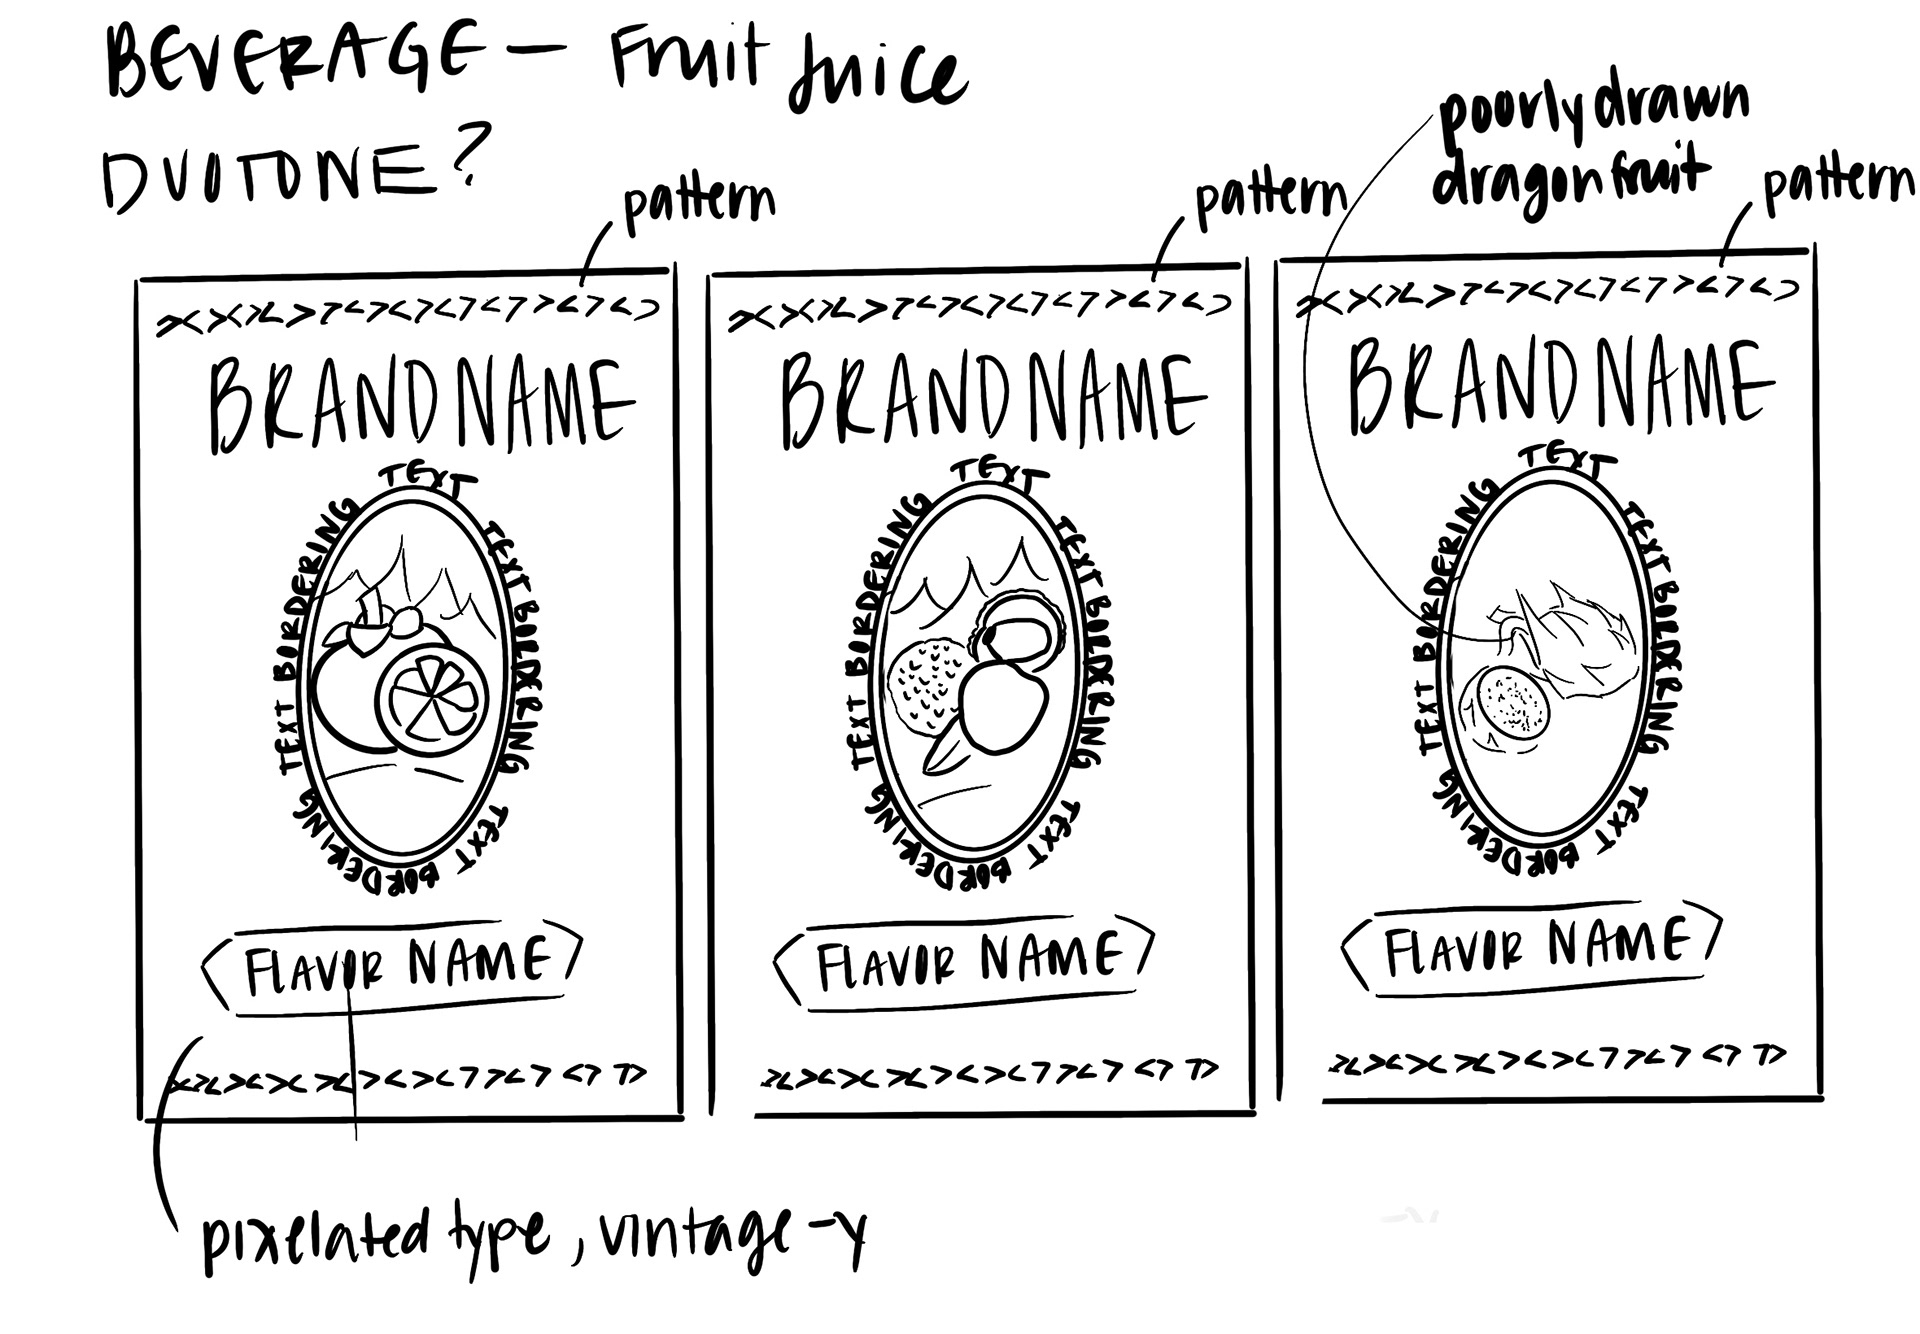 BEVERAGE — Fruit Juice
DUOTONE?
pattern
pattern
poorly drawn
dragonfruit
pattern
BRAND NAME
TEXT
TEXT BORDERING
TEXT BORDERING
TEXT BORDERING
FLAVOR NAME
BRAND NAME
TEXT
TEXT BORDERING
TEXT BORDERING
TEXT BORDERING
FLAVOR NAME
BRAND NAME
TEXT
TEXT BORDERING
TEXT BORDERING
TEXT BORDERING
FLAVOR NAME
pixelated type, vintage-y